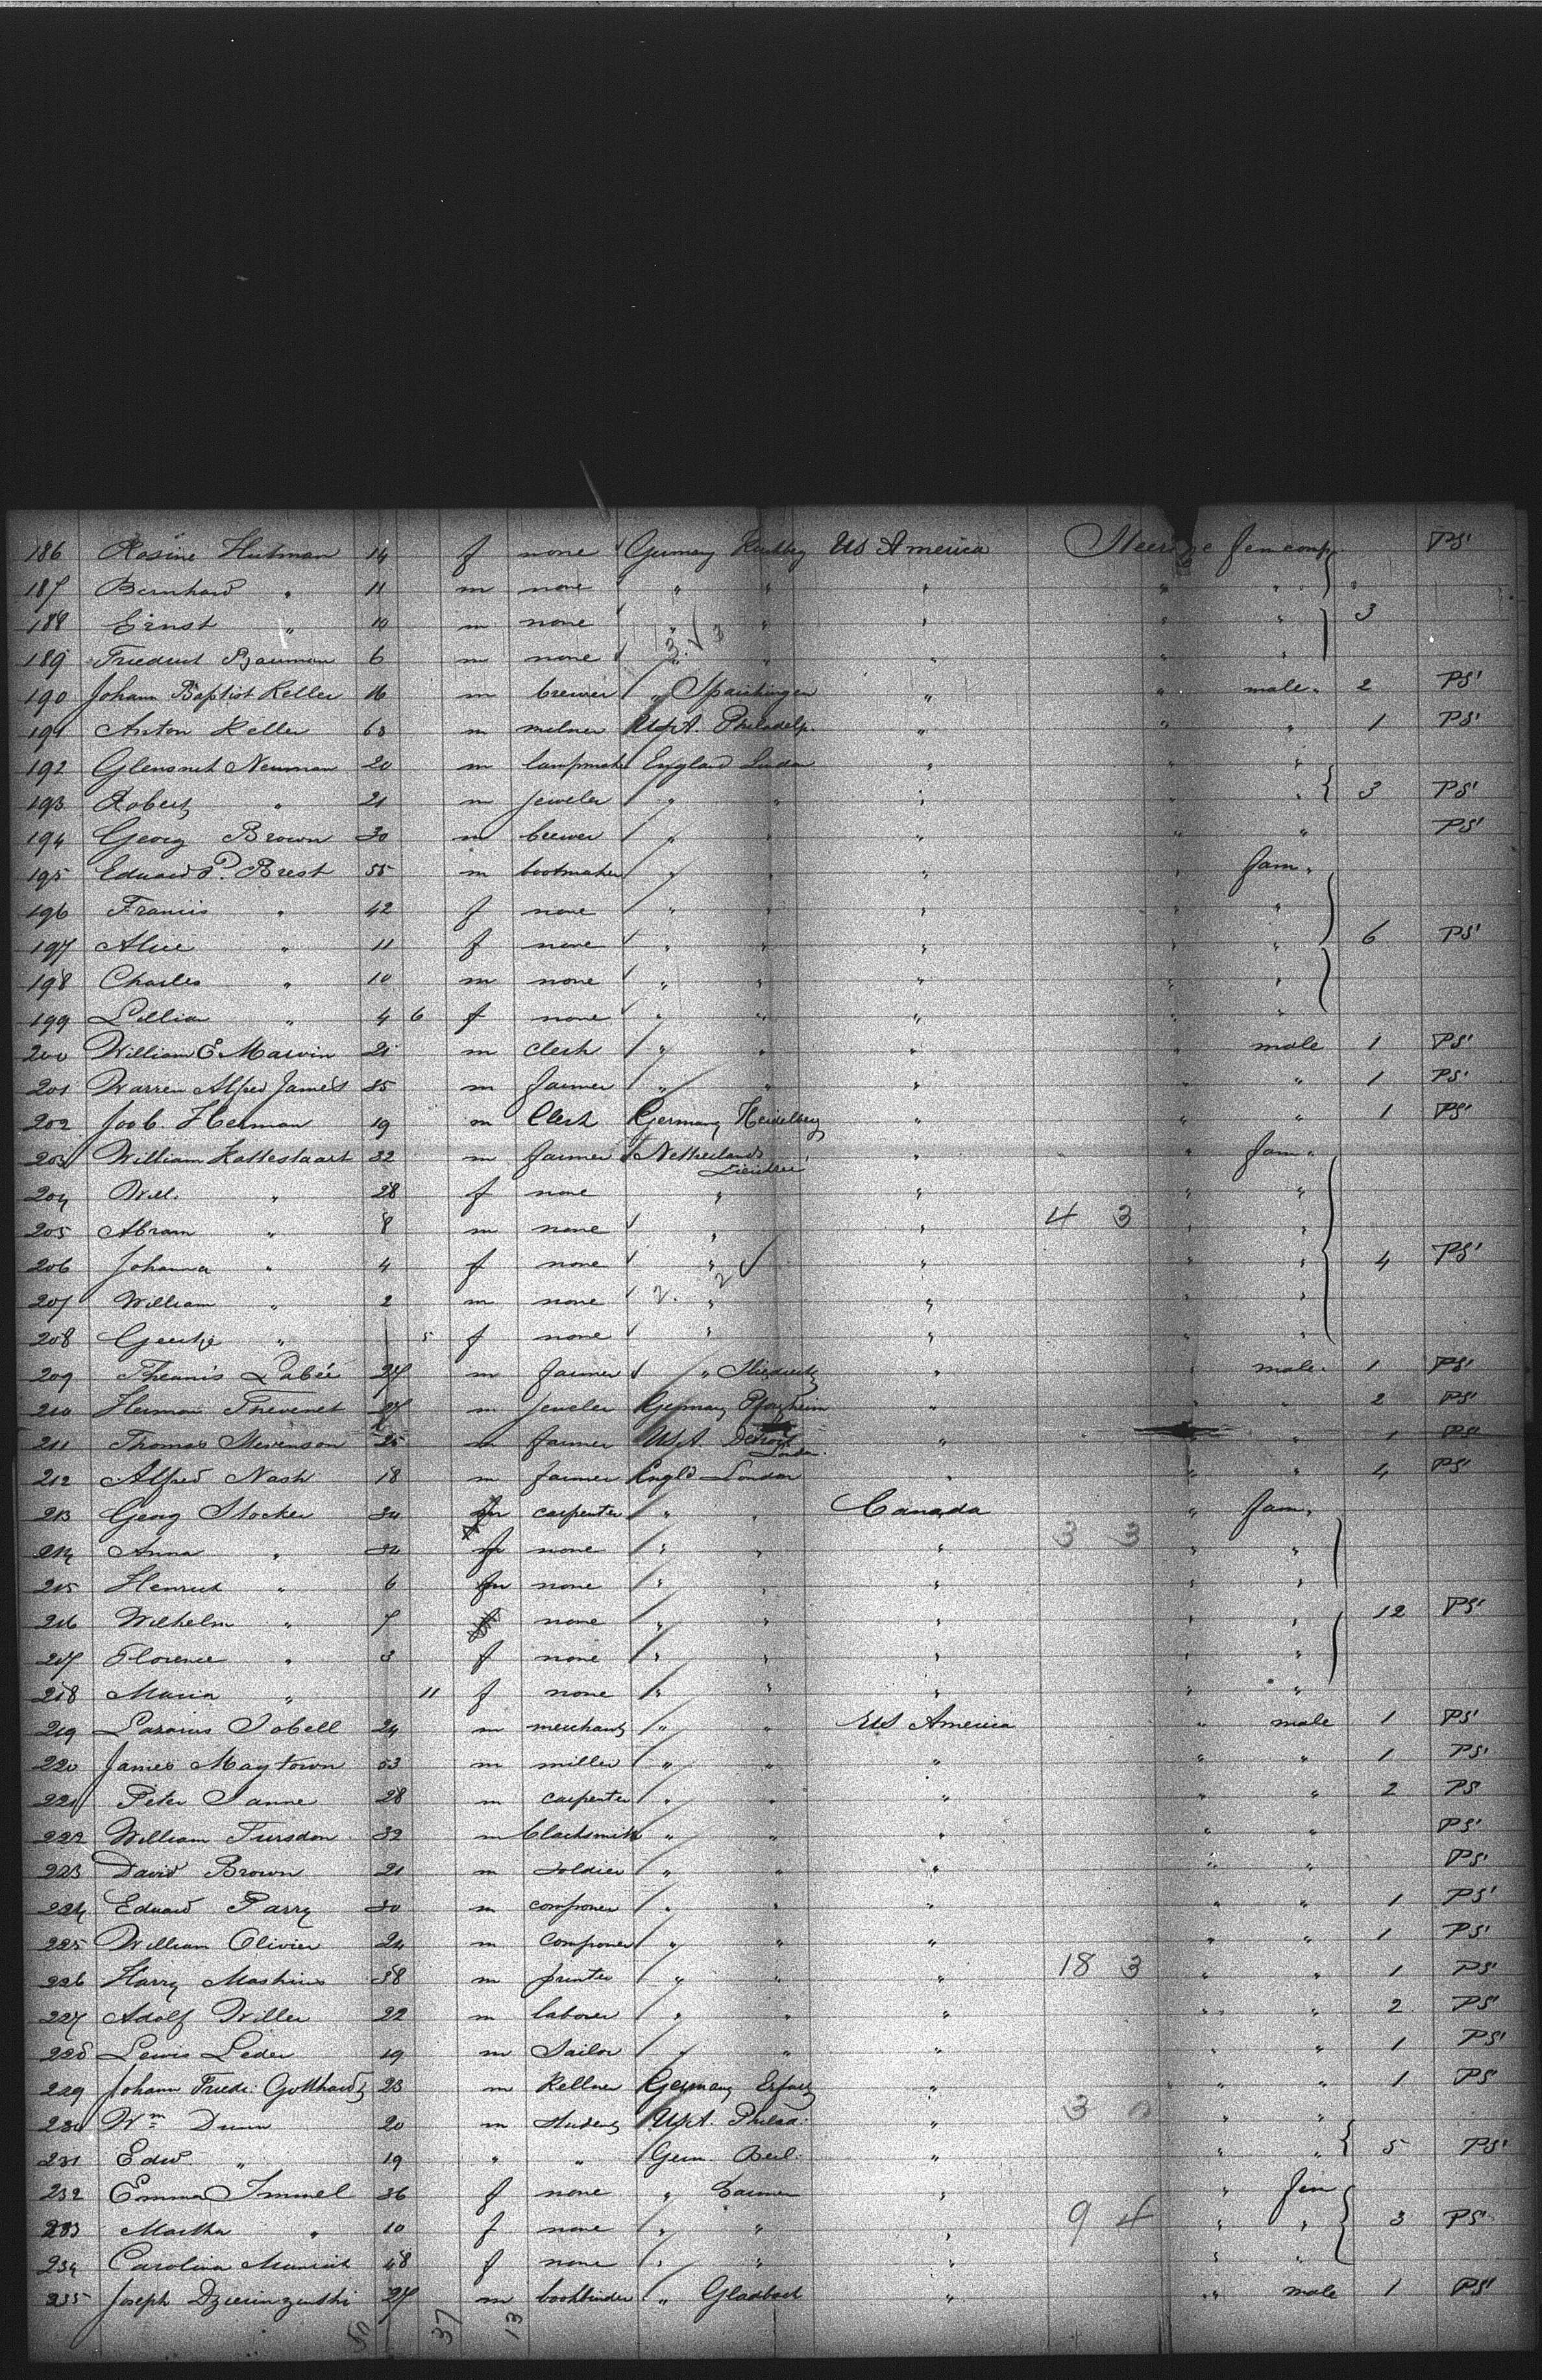 186 Rosine Hutman 14 f none Germany US America Steerage fem comp. PS'
187 Bernhard " 11 m none " " " " "
188 Ernst " 10 m none " " " " " 3
189 6 m none " " " " " 3. 3
190 Johann Baptist Keller 16 m brewer " Spaichingen " " male " 2 PS'
191 Anton Keller 63 m USA. Philadelp. " " " 1 PS'
192 Newman 20 m England London " " "
193 Robert " 21 m jeweler " " " " " 3 PS'
194 Georg Brown 30 m brewer " " " " " PS'
195 Eduard P. Brest 55 m bootmaker " " " " fam "
196 Francis " 42 f none " " " " "
197 Alice " 11 f none " " " " " 6 PS'
198 Charles " 10 m none " " " " "
199 Lillian " 4 6 f none " " " " "
200 William E Marvin 21 m clerk " " " " male 1 PS'
201 Warren Alfred James 35 m farmer " " " " " 1 PS'
202 Joob. Herman 19 m Clerk Germany Heidelberg " " " 1 PS'
203 William Kattestaart 32 m farmer Netherlands " " fam "
204 Will. " 28 f none " " " "
205 Abram " 8 m none " " 4 3 " "
206 Johanna " 4 f none " " " " 4 PS'
207 William " 2 m none 2. 2 " " " "
208 Geertje " 5 f none " " " "
209 Labée 27 m farmer " " " male " 1 PS'
210 Herman Thevenet 27 m jeweler Germany Pforzheim " " " 2 PS'
211 Thomas Stevenson 25 m farmer USA. Detroit London " " " 1 PS'
212 Alfred Nash 18 m farmer Engld London " " " 4 PS'
213 Georg Stocker 34 m carpenter " " Canada " fam "
214 Anna " 32 f none " " " 3 3 " "
215 Henriet " 6 none " " " " "
216 Wilhelm " 7 none " " " " " 12 PS'
217 Florence " 3 f none " " " " "
218 Maria " 11 f none " " " " "
219 Lazarus Sobell 24 m merchant " " US America " male 1 PS'
220 James Maytown 53 m miller " " " " " 1 PS'
221 Peter Sanne 28 m carpenter " " " " " 2 PS
222 William Tursdon 32 m blacksmith " " " " " PS'
223 David Brown 21 m soldier " " " " " PS'
224 Eduard Parry 30 m componer " " " " " 1 PS'
225 William Olivier 24 m componer " " " " " 1 PS'
226 Harry 38 m printer " " " 18 3 " " 1 PS'
227 Adolf Willer 22 m laborer " " " " " 2 PS'
228 Lewis Leder 19 m Sailor " " " " " 1 PS'
229 Johann Friedr. Gotthardt 23 m Kellner Germany Erfurt " " " 1 PS'
230 Wm Dunn 20 m student USA. Philad. " 3 " "
231 Edw " 19 " " Germ Berl. " " " 5 PS'
232 Emma Immel 36 f none " Barmen " " fem
233 Martha " 10 f none " " " 9 4 " " 3 PS'
234 Carolina 48 f none " " " " "
235 Joseph 27 m bookbinder " Gladbach " " male 1 PS'
50 37 13